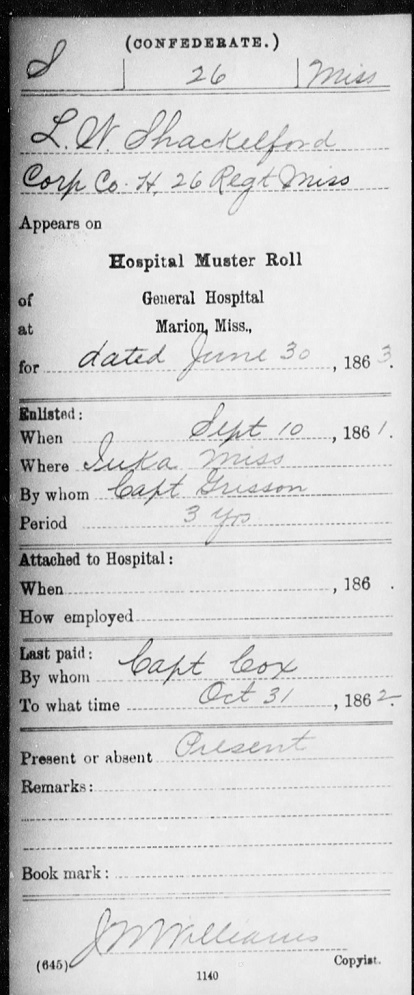 (CONFEDERATE.)
S | 26 | Miss
L. W. Shackelford
Corp Co. H, 26 Regt Miss
Appears on
Hospital Muster Roll
of General Hospital
at Marion, Miss.,
for dated June 30, 1863.
Enlisted:
When Sept 10, 1861.
Where Iuka Miss
By whom Capt Grisson
Period 3 yrs
Attached to Hospital:
When , 186 .
How employed
Last paid:
By whom Capt Cox
To what time Oct 31, 1862.
Present or absent Present
Remarks:
Book mark:
J W Williams
(645) Copyist.
1140